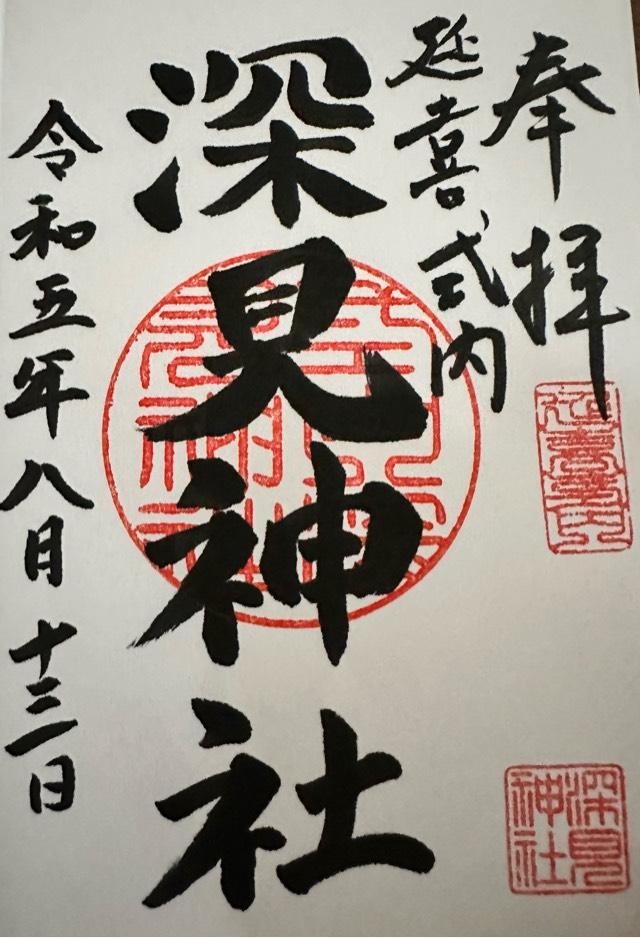 奉拝
延喜式内
深見神社
令和五年八月十三日
延喜式内
深見
神社